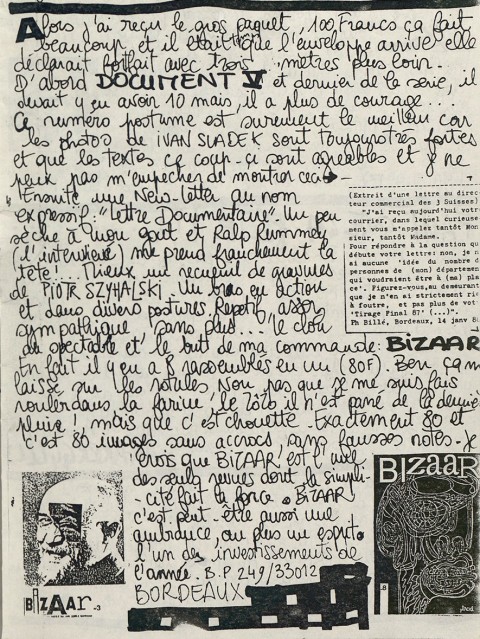 Alors j'ai reçu le gros paquet, 100 Francs ça fait
beaucoup, et il était temps que l'enveloppe arrive elle
déclarait forfait avec trois mètres plus loin.
D'abord DOCUMENT V et dernier de la serie, il
devait y en avoir 10 mais, il a plus de courage...
Ce numéro postume est surement le meilleur car
les photos de IVAN SLADEK sont toujours très fortes
et que les textes ce coup-ci sont agréables et je ne
peux pas m'empecher de montrer ceci
Ensuite une News-letter au nom
expressif: "Lettre Documentaire". Un peu
sèche à mon gout et Ralp Rummey
(l'interviewé) me prend franchement la
tête! Mieux un recueil de gravures
de PIOTR SZYHALSKI. Un bras en action
et dans divers postures. Repetit, assez
sympathique sans plus... le clou
du spectacle et le but de ma commande: BIZAAR
En fait il y en a 8 rassemblés en un (80F). Ben ça m
laisse sur les rotules Non pas que je me suis fais
rouler dans la farine, le zozo il n'est pas né de la dernière
pluie!, mais que c'est chouette. Exactement 80 et
c'est 80 images sans accrocs, sans fausses notes. Je
crois que BIZAAR est l'une
des seules revues dont la simpli-
-cité fait la force. BIZAAR
c'est peut-être aussi une
ambiance, ou plus un esprit.
l'un des investissements de
l'année. B.P 249/33012
BORDEAUX
(Extrait d'une lettre au direc
teur commercial des 3 Suisses)
"J'ai reçu aujourd'hui votr
courrier, dans lequel curieuse
ment vous m'appelez tantôt Mon
sieur, tantôt Madame.
Pour répondre à la question qu
débute votre lettre: non, je n
ai aucune "idée du nombre d
personnes de (mon) département
qui voudraient être à (ma) pla
ce". Figurez-vous, au demeurant
que je n'en ai strictement ri
à foutre, et pas plus de vot
'Tirage Final 87' (...)".
Ph Billé, Bordeaux, 14 janv 8
BIZAAR -3
BIZAAR
.8